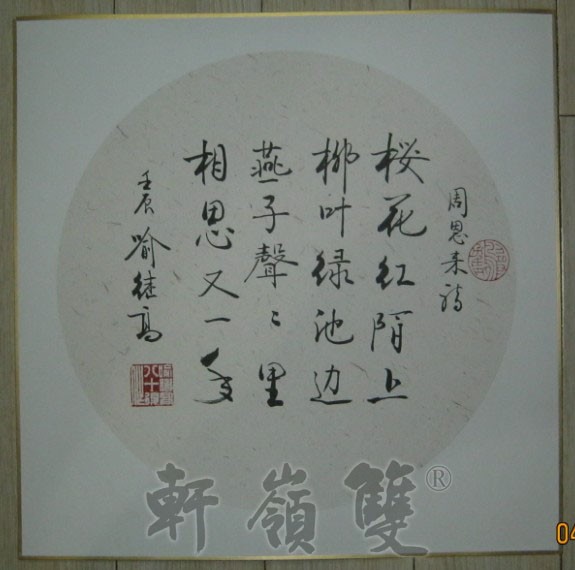 周恩来诗
桜花红陌上
柳叶绿池边
燕子聲〻里
相思又一年
壬辰喻继高
八十后
軒嶺雙®
04